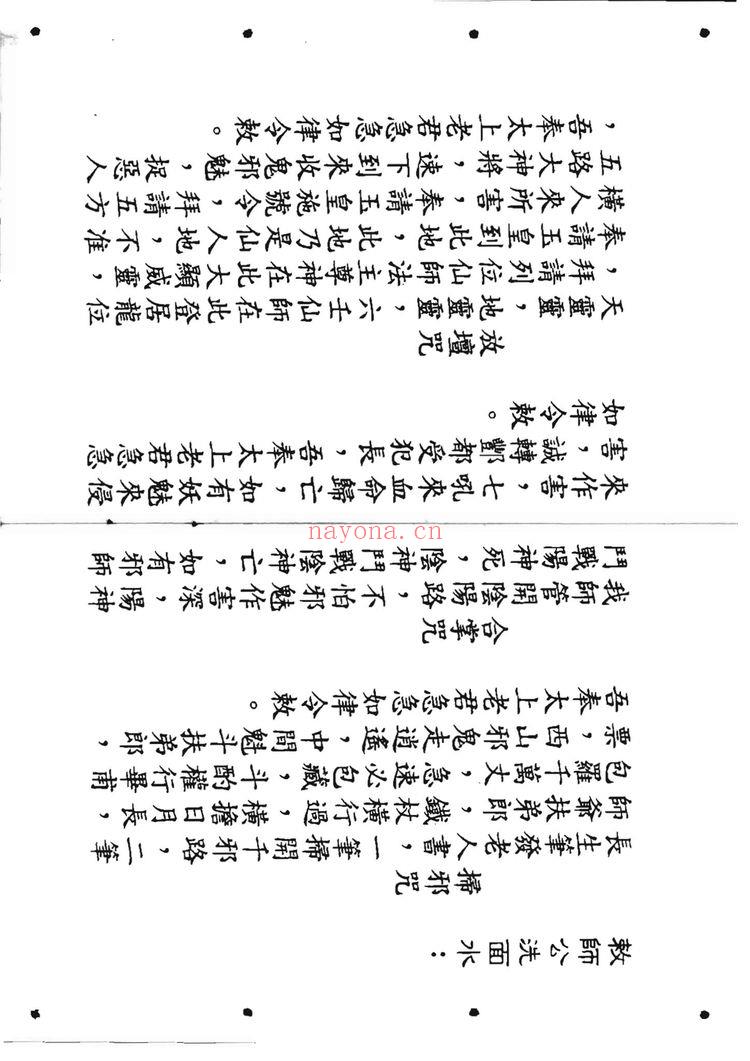 敕師公洗面水：
掃邪咒
長生筆發老人書，一筆掃開千邪路，二筆
師爺扶弟郎，鐵杖橫行過，橫擔日月長，
包羅千萬丈，急速必包藏，斗酌權行畢甫
票，西山邪鬼走逍遙，中間魁斗扶弟郎，
吾奉太上老君急急如律令敕。
合掌咒
我師管開陰陽路，不怕邪魅作害深，陽神
鬥戰陽神死，陰神鬥戰陰神亡，如有邪師
來作害，七吼來血命歸亡，如有妖魅來侵
害，誠轉酆都受犯長，吾奉太上老君急急
如律令敕。
放壇咒
天靈靈，地靈靈，六壬仙師在此登居龍位
，拜請列位仙師法主尊神在此大顯威靈，
奉請玉皇到此地，此地乃是仙人地，不准
橫人來所害，奉請玉皇施號令，拜請五方
五路大神將，速下到來收鬼邪魅，捉惡人
，吾奉太上老君急急如律令敕。
nayona.cn